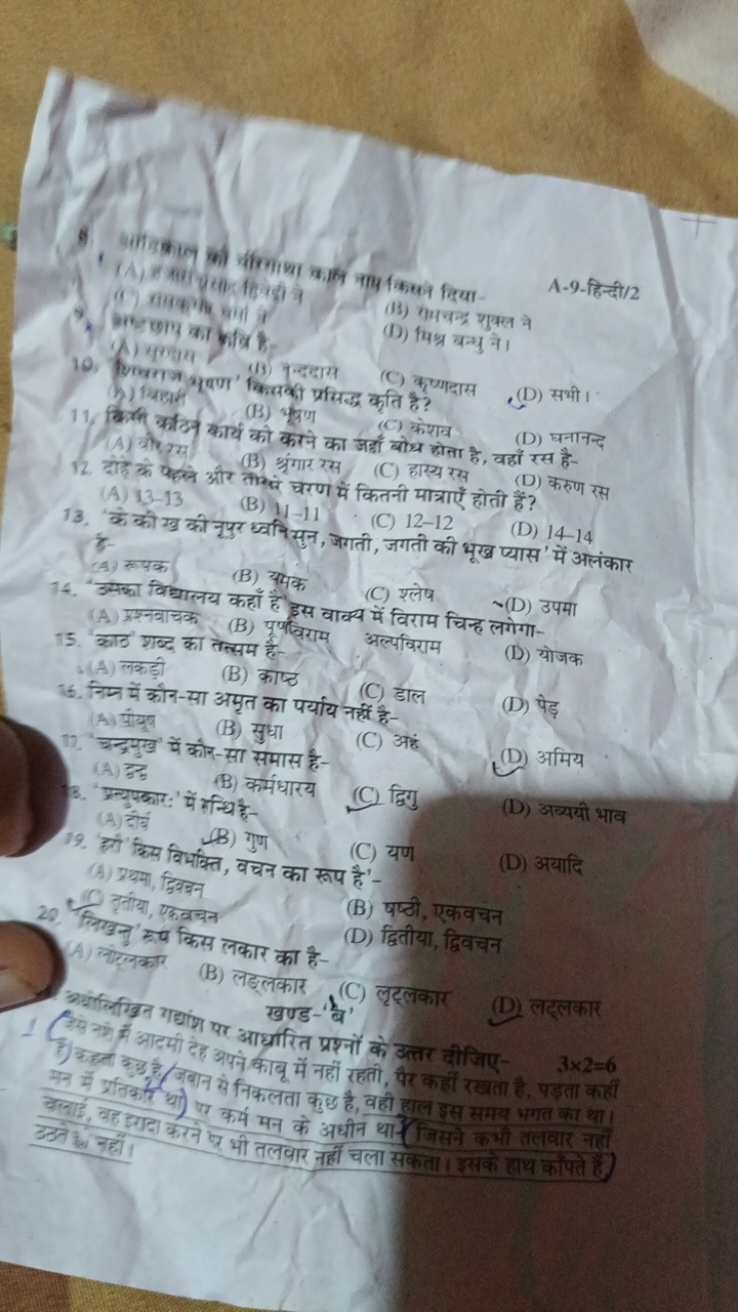 A-9-हिन्दी/2
8. आदिकाल को वीरगाथा काल नाम किसने दिया-
(A) हजारी प्रसाद द्विवेदी ने (B) रामचन्द्र शुक्ल ने
(C) रामकुमार वर्मा ने (D) मिश्र बन्धु ने।
9. अष्टछाप का कवि है-
(A) सूरदास (B) नन्ददास (C) कृष्णदास (D) सभी।
10. 'शिवराज भूषण' किसकी प्रसिद्ध कृति है?
(A) बिहारी (B) भूषण (C) केशव (D) घनानन्द
11. किसी कठिन कार्य को करने का जहाँ बोध होता है, वहाँ रस है-
(A) वीर रस (B) श्रृंगार रस (C) हास्य रस (D) करुण रस
12. दोहे के पहले और तीसरे चरण में कितनी मात्राएँ होती हैं?
(A) 13-13 (B) 11-11 (C) 12-12 (D) 14-14
13. 'के की रव की नूपुर ध्वनि सुन, जगती, जगती की भूख प्यास' में अलंकार
है-
(A) रूपक (B) यमक (C) श्लेष (D) उपमा
14. 'उसका विद्यालय कहाँ है' इस वाक्य में विराम चिन्ह लगेगा-
(A) प्रश्नवाचक (B) पूर्णविराम अल्पविराम (D) योजक
15. 'काठ' शब्द का तत्सम है-
(A) लकड़ी (B) काष्ठ (C) डाल (D) पेड़
16. निम्न में कौन-सा अमृत का पर्याय नहीं है-
(A) पीयूष (B) सुधा (C) अहं (D) अमिय
17. 'चन्द्रमुख' में कौन-सा समास है-
(A) द्वन्द्व (B) कर्मधारय (C) द्विगु (D) अव्ययी भाव
18. 'प्रत्युपकारः' में सन्धि है-
(A) दीर्घ (B) गुण (C) यण (D) अयादि
19. 'हरौ' किस विभक्ति, वचन का रूप है'-
(A) प्रथमा, द्विवचन (B) षष्ठी, एकवचन
(C) तृतीया, एकवचन (D) द्वितीया, द्विवचन
20. 'लिखतु' रूप किस लकार का है-
(A) लोट्लकार (B) लङ्लकार (C) लृट्लकार (D) लट्लकार
खण्ड-'ब'
अधोलिखित गद्यांश पर आधारित प्रश्नों के उत्तर दीजिए- 3x2=6
जैसे नशे में आदमी देह अपने काबू में नहीं रहती, पैर कहीं रखता है, पड़ता कहीं
है, कहता कुछ है, जबान से निकलता कुछ है, वही हाल इस समय भगत का था।
मन में प्रतिकार था पर कर्म मन के अधीन था- जिसने कभी तलवार नहीं
चलाई, वह इरादा करने पर भी तलवार नहीं चला सकता। इसके हाथ काँपते हैं
उठते ही नहीं।